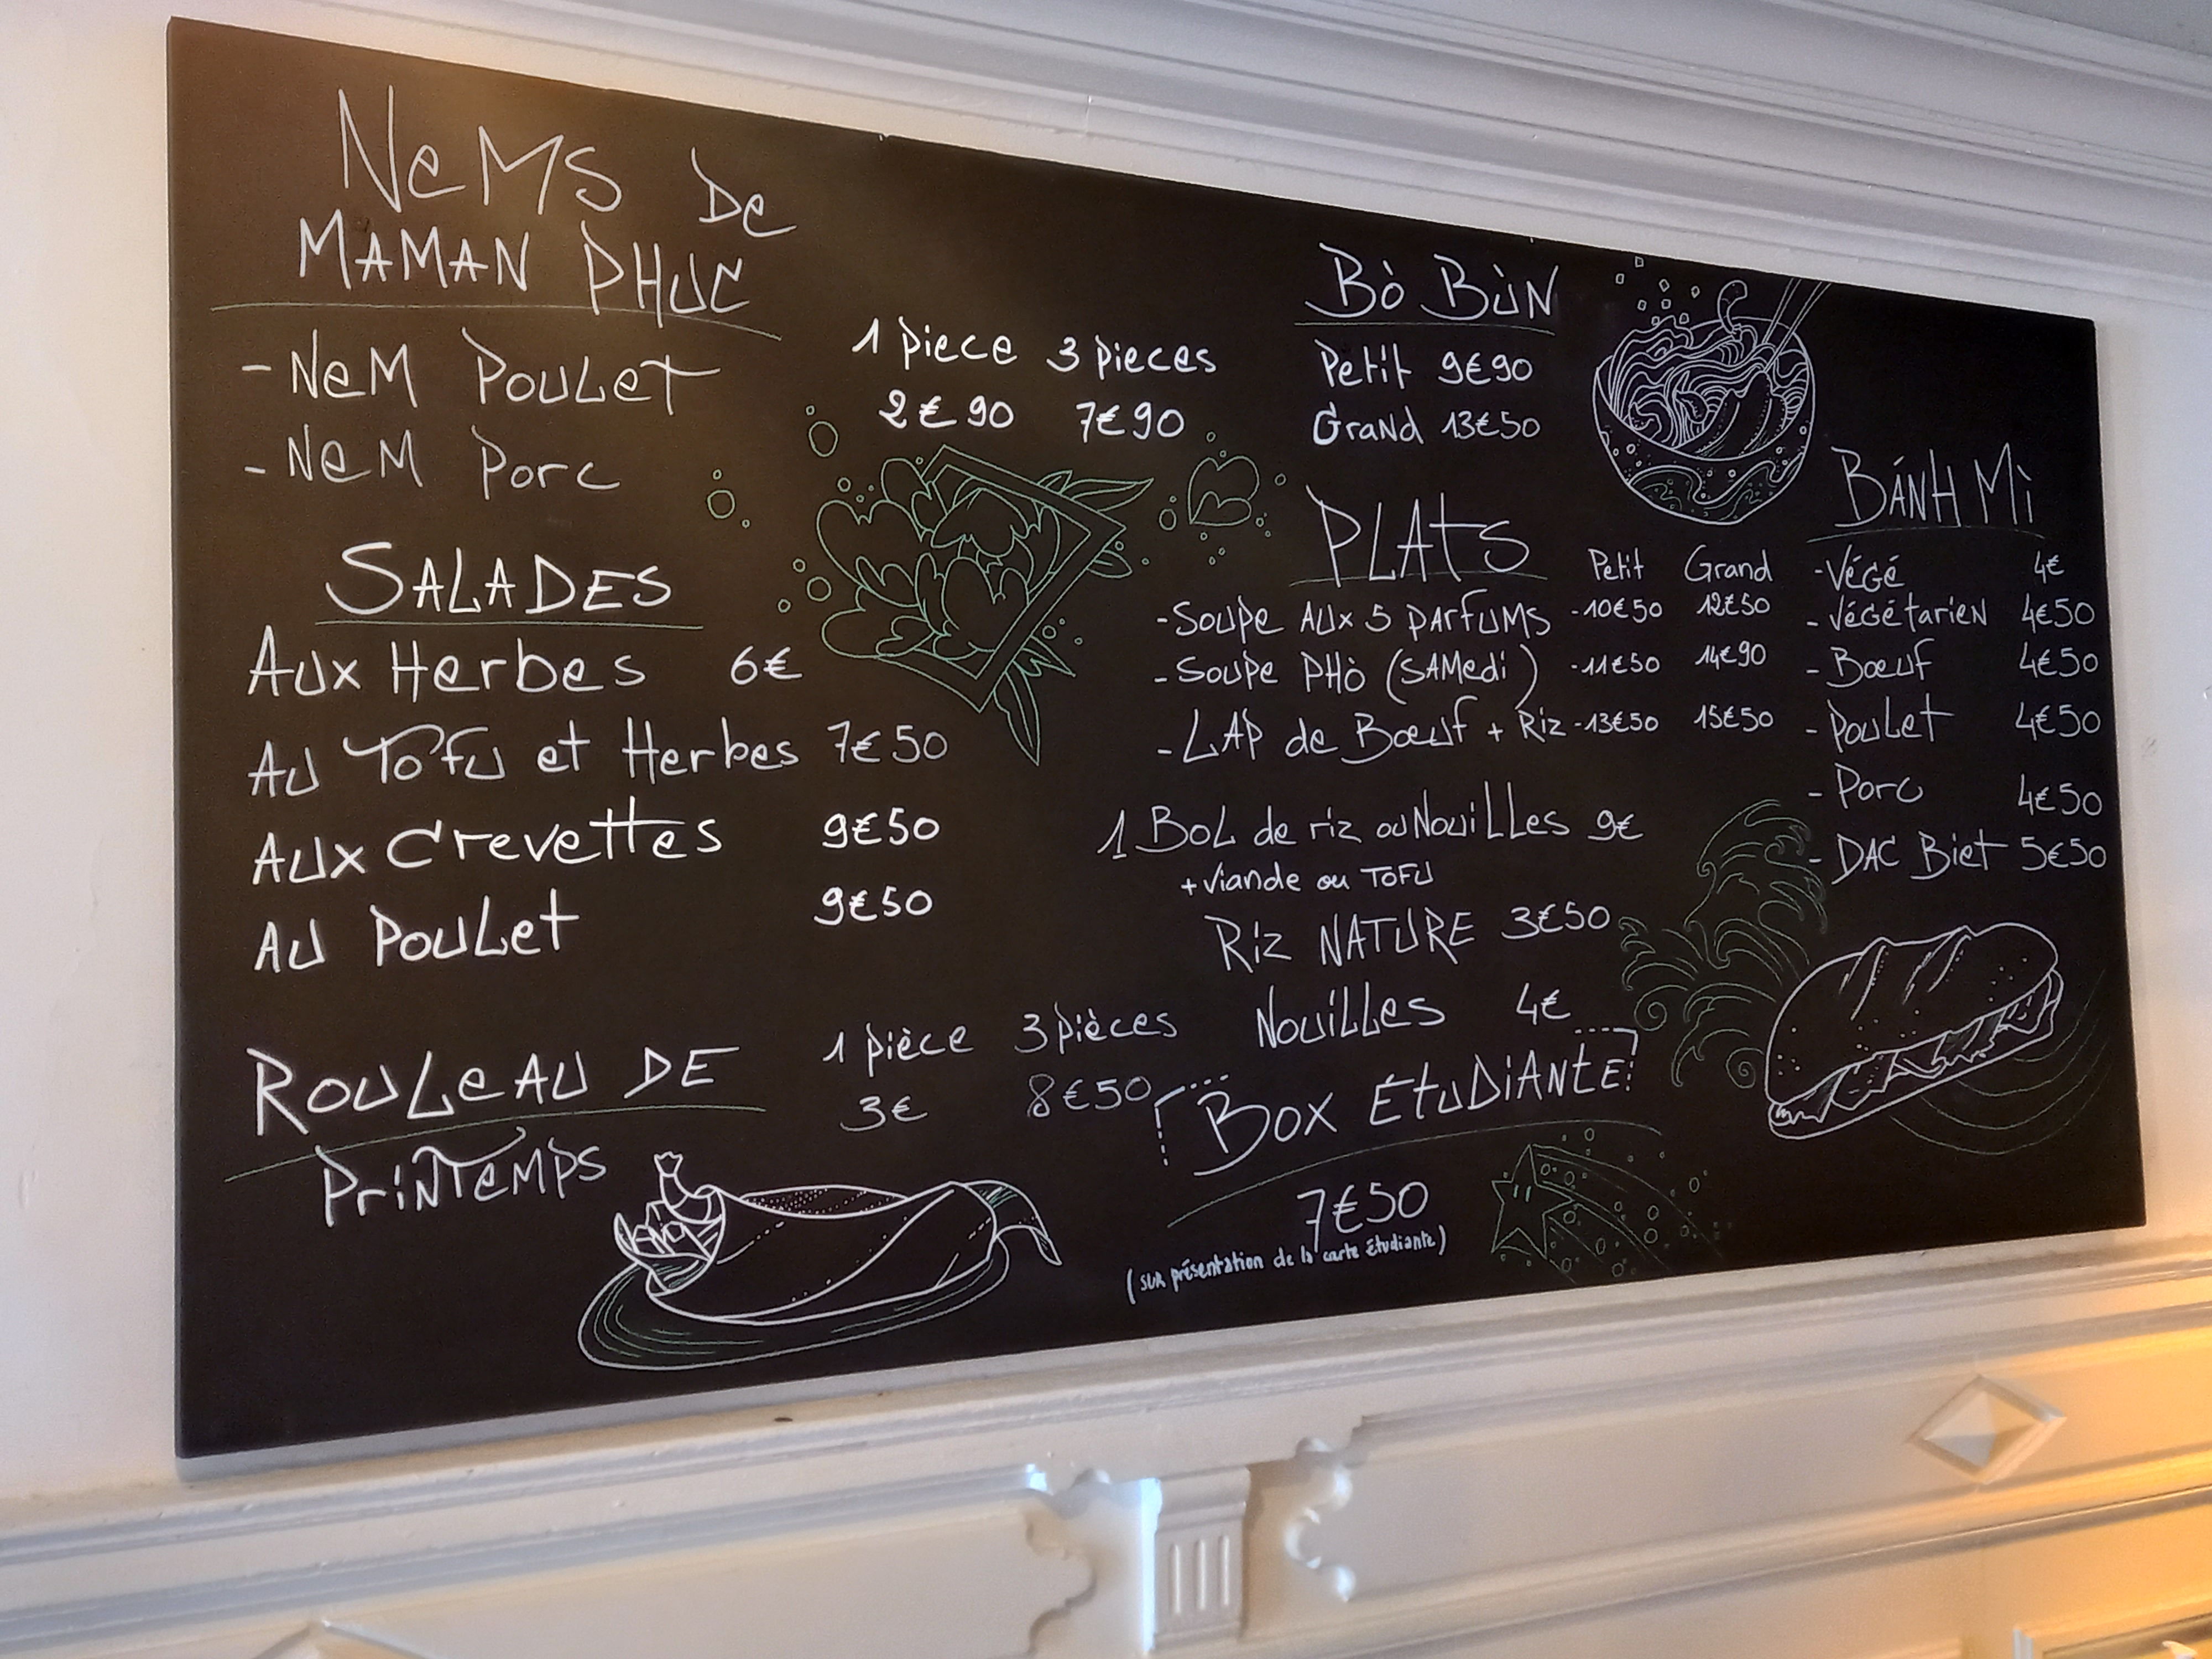 NeMS De
MAMAN PHUC
- NeM POULET
- NeM Porc
1 piece 3 pieces
2€90 7€90
SALADES
Aux Herbes 6€
Au Tofu et Herbes 7€50
Aux Crevettes 9€50
Au Poulet 9€50
ROULeAU DE
PriNTeMPS
1 pièce 3 pièces
3€ 8€50
Bò BùN
Petit 9€90
Grand 13€50
PLATS
Petit Grand
- Soupe Aux 5 PArfuMS -10€50 12€50
- Soupe PHò (SAMedi) -11€50 14€90
- LAP de Bœuf + Riz -13€50 15€50
1 BOL de riz ou NouiLLes 9€
+ viande ou TOFU
Riz NATURE 3€50
NouiLLes 4€
BOX ÉTUDIANTE
7€50
(sur présentation de la carte étudiante)
BÁNH Mì
- Végé 4€
- Végétarien 4€50
- Bœuf 4€50
- Poulet 4€50
- Porc 4€50
- DAC Biet 5€50